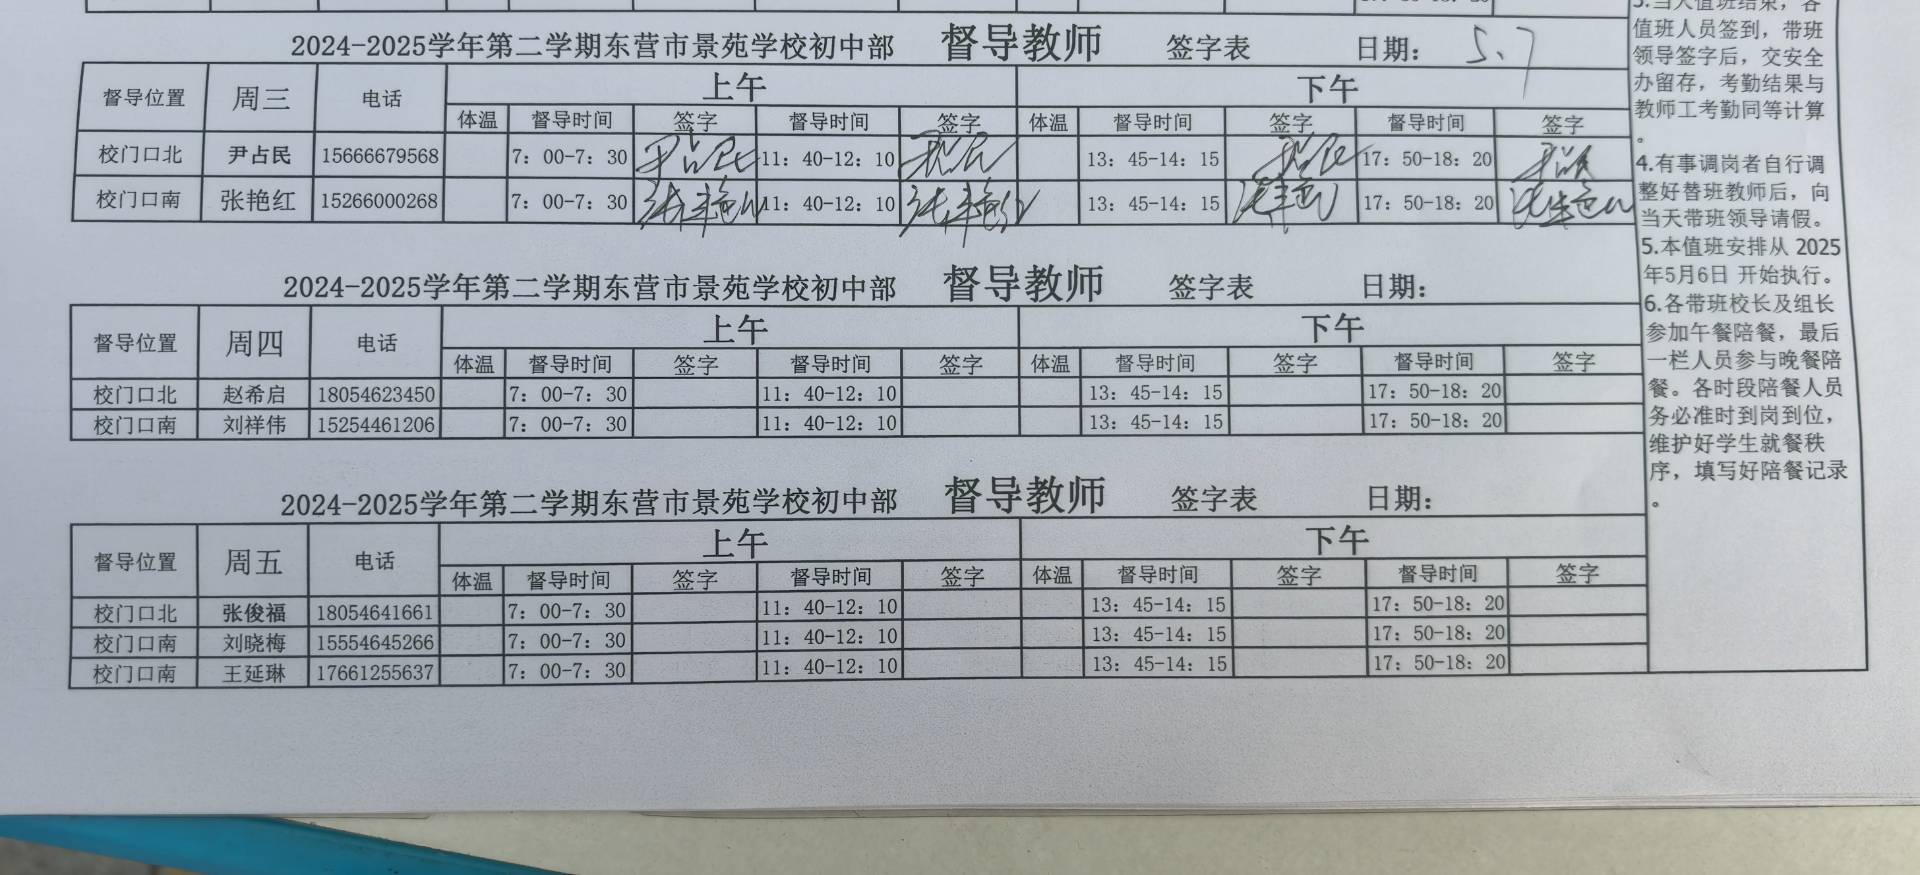 2024-2025学年第二学期东营市景苑学校初中部 督导教师 签字表 日期: 5.7
督导位置 周三 电话 上午 下午
体温 督导时间 签字 督导时间 签字 体温 督导时间 签字 督导时间 签字
校门口北 尹占民 15666679568 7: 00-7: 30 尹占民 11: 40-12: 10 13: 45-14: 15 17: 50-18: 20
校门口南 张艳红 15266000268 7: 00-7: 30 张艳红 11: 40-12: 10 张艳红 13: 45-14: 15 张艳红 17: 50-18: 20 张艳红
2024-2025学年第二学期东营市景苑学校初中部 督导教师 签字表 日期:
督导位置 周四 电话 上午 下午
体温 督导时间 签字 督导时间 签字 体温 督导时间 签字 督导时间 签字
校门口北 赵希启 18054623450 7: 00-7: 30 11: 40-12: 10 13: 45-14: 15 17: 50-18: 20
校门口南 刘祥伟 15254461206 7: 00-7: 30 11: 40-12: 10 13: 45-14: 15 17: 50-18: 20
2024-2025学年第二学期东营市景苑学校初中部 督导教师 签字表 日期:
督导位置 周五 电话 上午 下午
体温 督导时间 签字 督导时间 签字 体温 督导时间 签字 督导时间 签字
校门口北 张俊福 18054641661 7: 00-7: 30 11: 40-12: 10 13: 45-14: 15 17: 50-18: 20
校门口南 刘晓梅 15554645266 7: 00-7: 30 11: 40-12: 10 13: 45-14: 15 17: 50-18: 20
校门口南 王延琳 17661255637 7: 00-7: 30 11: 40-12: 10 13: 45-14: 15 17: 50-18: 20
3.当天值班结束，各
值班人员签到，带班
领导签字后，交安全
办留存，考勤结果与
教师工考勤同等计算
。
4.有事调岗者自行调
整好替班教师后，向
当天带班领导请假。
5.本值班安排从 2025
年5月6日 开始执行。
6.各带班校长及组长
参加午餐陪餐，最后
一栏人员参与晚餐陪
餐。各时段陪餐人员
务必准时到岗到位，
维护好学生就餐秩
序，填写好陪餐记录
。